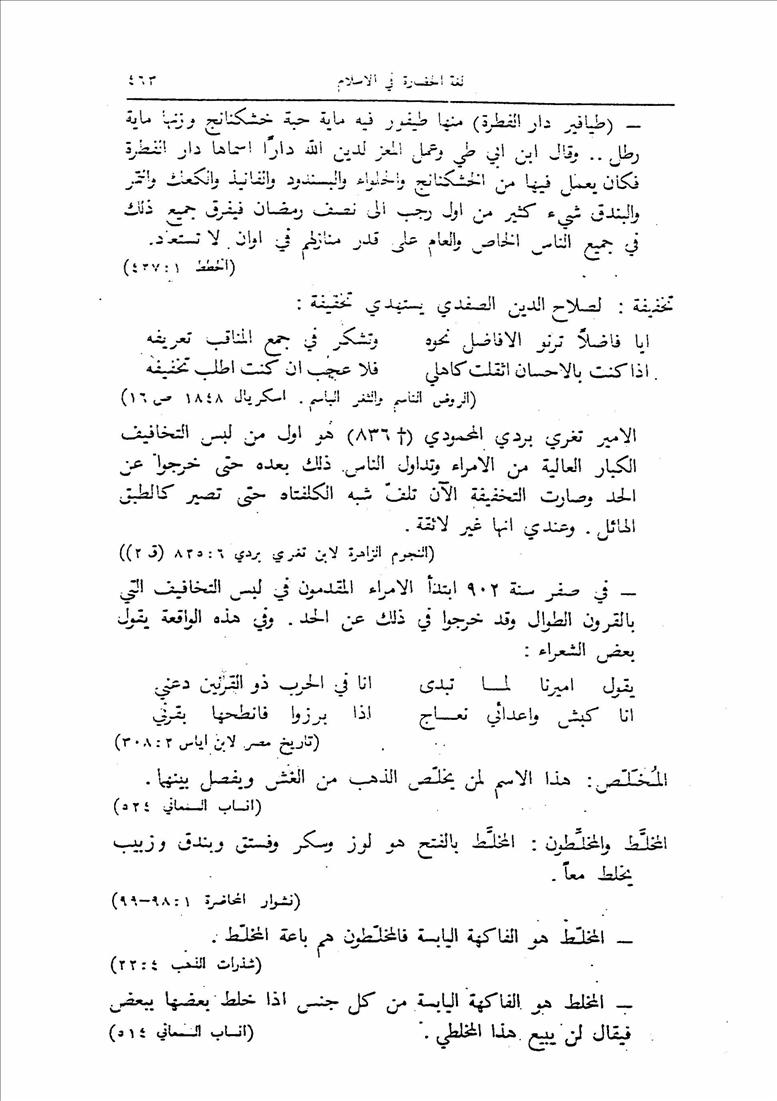 لغة الحضارة في الاسلام ٤٦٣
— (طيافير دار الفطرة) منها طيفور فيه ماية حبة خشكنانج وزنها ماية
رطل .. وقال ابن ابي طي وعمل المعز لدين الله داراً اسماها دار الفطرة
فكان يعمل فيها من الخشكنانج والحلواء والبسندود والفانيذ والكعك والتمر
والبندق شيء كثير من اول رجب الى نصف رمضان فيفرق جميع ذلك
في جميع الناس الخاص والعام على قدر منازلهم في اوان لا تستعاد.
(الخطط ١ : ٤٢٧)
تخفيفة : لصلاح الدين الصفدي يستهدي تخفيفة :
ايا فاضلاً ترنو الافاضل نحوه وتشكر في جمع المناقب تعريفه
اذا كنت بالاحسان اثقلت كاهلي فلا عجب ان كنت اطلب تخفيفه
(الروض الناسم والثغر الباسم . اسكريال ١٨٤٨ ص ١٦)
الامير تغري بردي المحمودي († ٨٣٦) هو اول من لبس التخافيف
الكبار العالية من الامراء وتداول الناس ذلك بعده حتى خرجوا عن
الحد وصارت التخفيفة الآن تلفّ شبه الكلفتاه حتى تصير كالطبق
الهائل . وعندي انها غير لائقة .
(النجوم الزاهرة لابن تغري بردي ٦ : ٨٢٥ (ق ٢))
— في صفر سنة ٩٠٢ ابتدأ الامراء المقدمون في لبس التخافيف التي
بالقرون الطوال وقد خرجوا في ذلك عن الحد . وفي هذه الواقعة يقول
بعض الشعراء :
يقول اميرنا لمـــا تبدى انا في الحرب ذو القرنين دعني
انا كبش واعدائي نعـــاج اذا برزوا فانطحها بقرني
(تاريخ مصر لابن اياس ٢ : ٣٠٨)
المُخَلّص : هذا الاسم لمن يخلّص الذهب من الغش ويفصل بينها .
(انساب السمعاني ٥٢٤)
المخلَّط والمخلَّطون : المخلَّط بالفتح هو لوز وسكر وفستق وبندق وزبيب
يخلط معاً .
(نشوار المحاضرة ١ : ٩٨–٩٩)
— المخلّط هو الفاكهة اليابسة فالمخلّطون هم باعة المخلّط .
(شذرات الذهب ٤ : ٢٢)
— المخلط هو الفاكهة اليابسة من كل جنس اذا خلط بعضها ببعض
فيقال لمن يبيع هذا المخلطي . (انساب السمعاني ٥١٤)